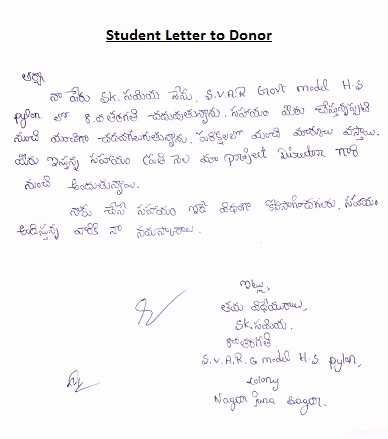 Student Letter to Donor
ఆర్యా
నా పేరు SK. సమియ నేను, S.V.A.R Govt model H.S
pylon లో 8వ తరగతి చదువుతున్నాను. సహాయం మీరు చేస్తున్నప్పటి
నుంచి మంచిగా చదవగలుగుతున్నాను. పరీక్షలలో మంచి మార్కులు వస్తాయి.
మీరు ఇస్తున్న సహాయం ప్రతి నెల మా project Director గారి
నుంచి అందుతున్నాయి.
నాకు చేసే సహాయం ఇదే విధంగా కొనసాగించగలరు, సహాయం
అందిస్తున్న వారికి నా నమస్కారాలు.
ఇట్లు,
తమ విధేయురాలు,
SK. సమియ.
8వ తరగతి
S.V.A.R.G model H.S pylon,
colony
Nagarjuna Sagar.